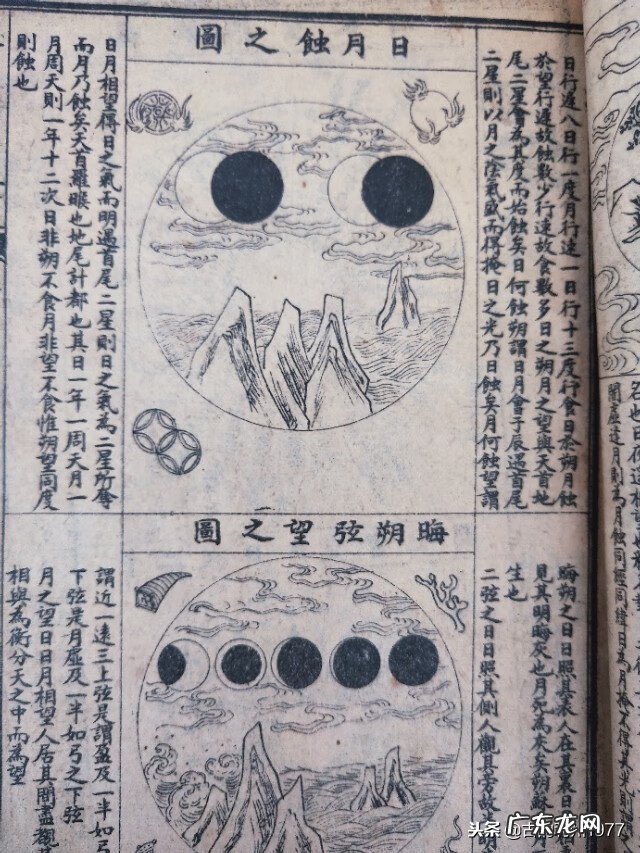 日月蝕之圖
日行遲八日行一度月行速一日行十三度行食日於朔月蝕
於望行遲故蝕數少行速故食數多日之朔月之望與天首地
尾二星會為其度而始蝕矣日何蝕朔謂日月會于辰遇首尾
二星則以月之陰氣盛而得掩日之光乃日蝕矣月何蝕望謂
日月相望得日之氣而明遇首尾二星則日之氣為二星所奪
而月乃蝕矣天首羅睺也地尾計都也其日一年一周天月一
月周天則一年十二次日非朔不食月非望不食惟朔望同度
則蝕也
晦朔弦望之圖
晦朔之日日照其表人在其裏
見其明晦灰也月死為
生也
二弦之日日照其側人觀其旁故
謂近一遠三上弦是謂盈及一半如弓
下弦是月虛及一半如弓之下弦
月之望日日月相望人居其間盡觀
相與為衡分天之中而為望
头条
广东龙网